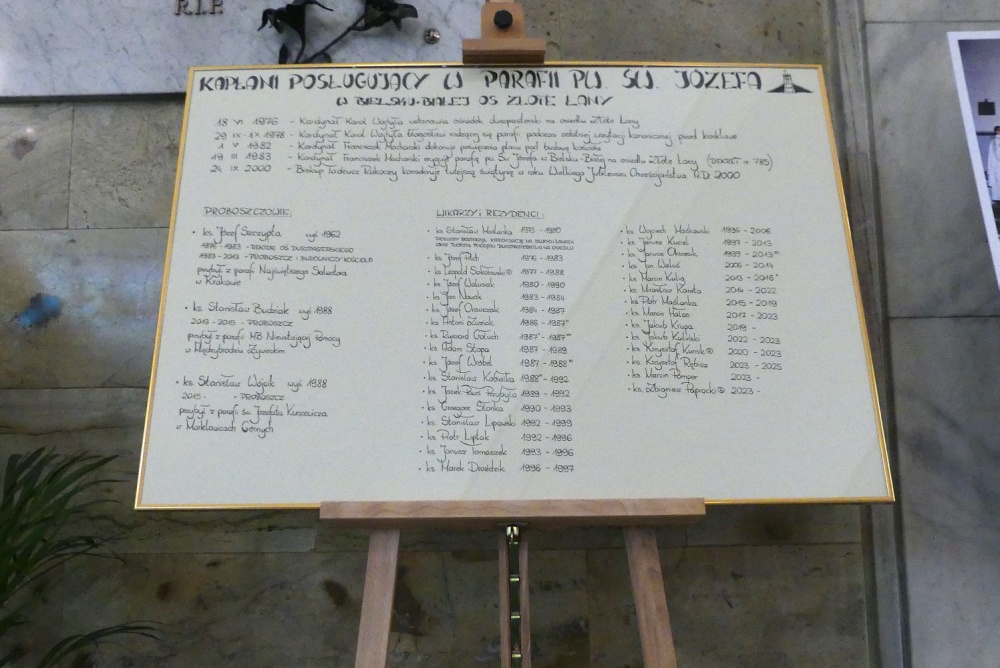 R.I.P.
KAPŁANI POSŁUGUJĄCY W PARAFII PW. ŚW. JÓZEFA
W BIELSKU-BIAŁEJ OS ZŁOTE ŁANY
18 VI 1976 - Kardynał Karol Wojtyła ustanawia ośrodek duszpasterski na osiedlu Złote Łany
29 IX - 1 X 1978 - Kardynał Karol Wojtyła błogosławi rodzącej się parafii podczas ostatniej wizytacji kanonicznej przed konklawe
1 V 1982 - Kardynał Franciszek Macharski dokonuje poświęcenia placu pod budowę kościoła
19 III 1983 - Kardynał Franciszek Macharski eryguje parafię pw Św Józefa w Bielsku-Białej na osiedlu Złote Łany
24 IX 2000 - Biskup Tadeusz Rakoczy konsekruje tutejszą świątynię w roku Wielkiego Jubileuszu Chrześcijaństwa A.D. 2000
PROBOSZCZOWIE:
• ks Józef Szczypta wyś 1962
1976 - 1983 - REKTOR OŚ DUSZPASTERSKIEGO
1983 - 2013 - PROBOSZCZ - BUDOWNICZY KOŚCIOŁA
przybył z parafii Najświętszego Salwatora
w Krakowie
• ks. Stanisław Budziak wyś 1988
2013 - 2015 - PROBOSZCZ
przybył z parafii MB Nieustającej Pomocy
w Międzybrodziu Żywieckim
• ks. Stanisław Wójcik wyś 1988
2015 - - PROBOSZCZ
przybył z parafii św. Jozafata Kuncewicza
w Marklowicach Górnych
WIKARZY I REZYDENCI:
• ks Stanisław 1975 - 1980
• ks Józef 1976 - 1983
• ks Leopold Sokołowski® 1977 - 1988
• ks Józef Walusiak 1980 - 1990
• ks Jan Nowak 1983 - 1984
• ks Józef Oramczak 1984 - 1987
• ks Antoni 1986 - 1987
• ks Ryszard 1987 - 1987
• ks Adam Stopa 1987 - 1989
• ks Józef Wróbel 1987 - 1988
• ks Stanisław Kobiałka 1988 - 1992
• ks Jacek Piotr Przybyła 1989 - 1992
• ks Grzegorz Słonka 1990 - 1993
• ks Stanisław Lipowski 1992 - 1993
• ks Piotr Liptak 1992 - 1996
• ks Janusz Tomaszek 1993 - 1996
• ks Marek Droździk 1996 - 1997
• ks Wojciech 1996 - 2006
• ks Janusz Kuciel 1997 - 2013
• ks Janusz 1999 - 2013
• ks Jan Waluś 2006 - 2014
• ks Marcin Kulig 2013 - 2016
• ks Mirosław Kareta 2014 - 2022
• ks Piotr Maślanka 2015 - 2019
• ks Marcin Hałas 2017 - 2023
• ks Jakub Krupa 2019 -
• ks Jakub Kuliński 2022 - 2023
• ks Krzysztof Kurnik® 2020 - 2023
• ks Krzysztof 2023 - 2025
• ks Marcin Pomper 2023 -
• ks Zbigniew Paprocki® 2023 -